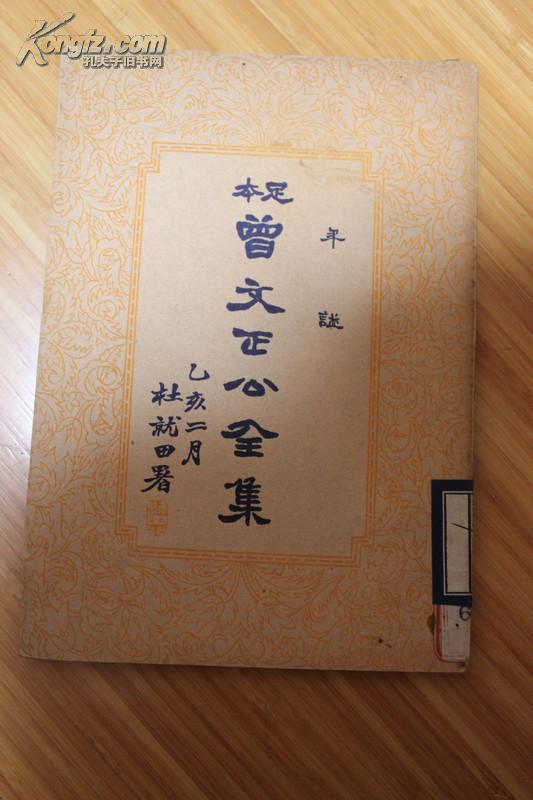 Kongfz.com
孔夫子旧书网
年謎
足本
曾文正公全集
乙亥二月
杜就田署
6